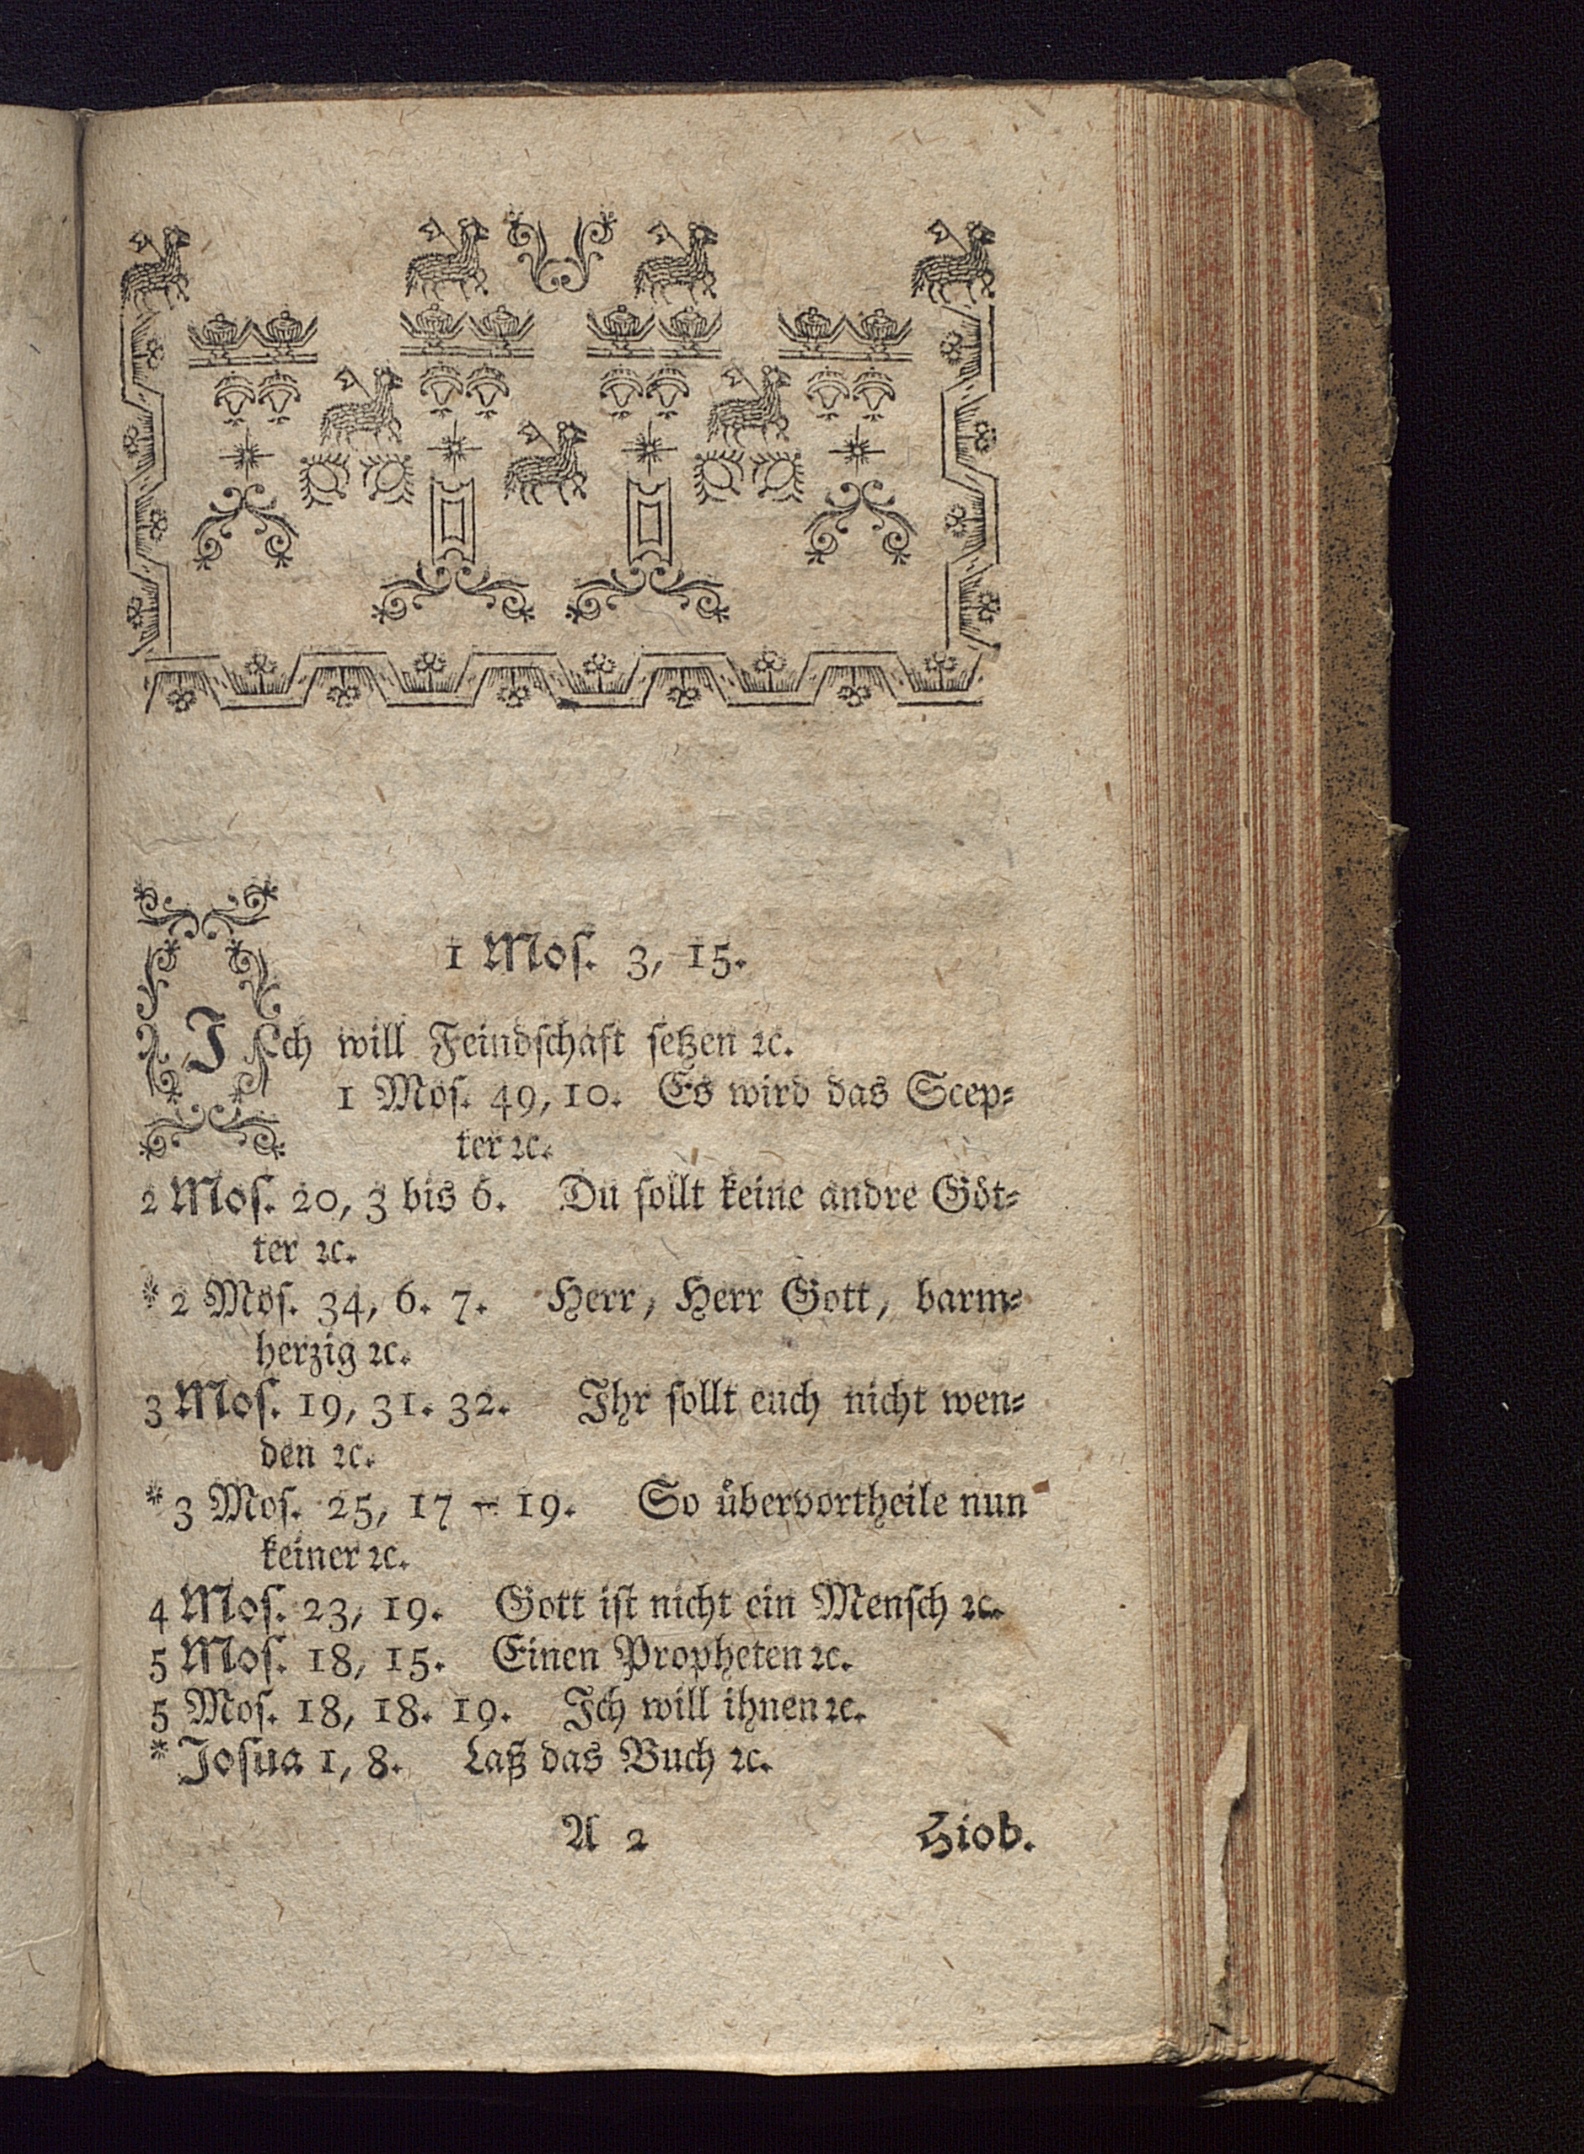 1 Moſ. 3, 15.
Ich will Feindſchaft ſetzen ꝛc.
1 Moſ. 49, 10. Es wird das Scep⸗
ter ꝛc.
2 Moſ. 20, 3 bis 6. Du ſollt keine andre Göt⸗
ter ꝛc.
* 2 Moſ. 34, 6. 7. Herr, Herr Gott, barm⸗
herzig ꝛc.
3 Moſ. 19, 31. 32. Ihr ſollt euch nicht wen⸗
den ꝛc.
* 3 Moſ. 25, 17 – 19. So übervortheile nun
keiner ꝛc.
4 Moſ. 23, 19. Gott iſt nicht ein Menſch ꝛc.
5 Moſ. 18, 15. Einen Propheten ꝛc.
5 Moſ. 18, 18. 19. Ich will ihnen ꝛc.
* Joſua 1, 8. Laß das Buch ꝛc.
A 2 Hiob.